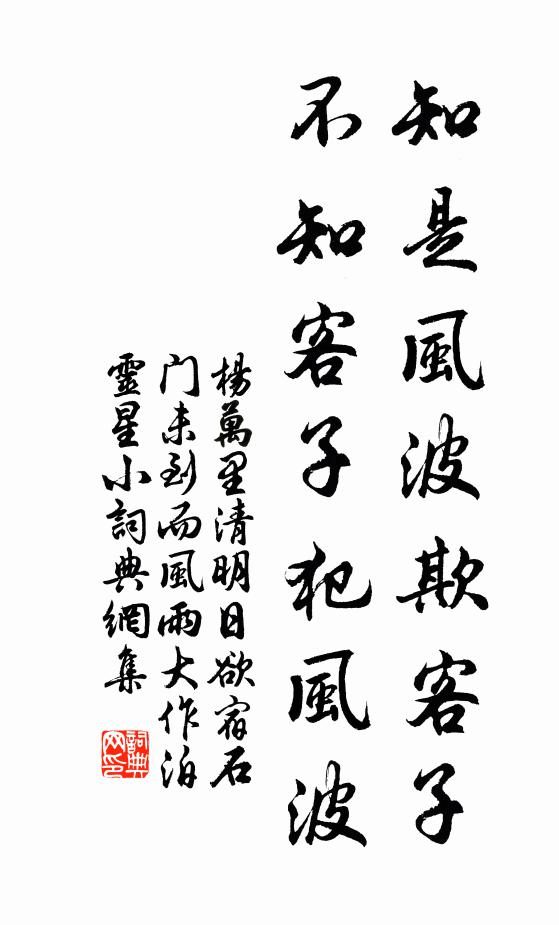 知是風波欺客子
不知客子犯風波
楊萬里清明日欲宿石
门未到而風雨大作泊
靈星小詞典網集
詞典
网印